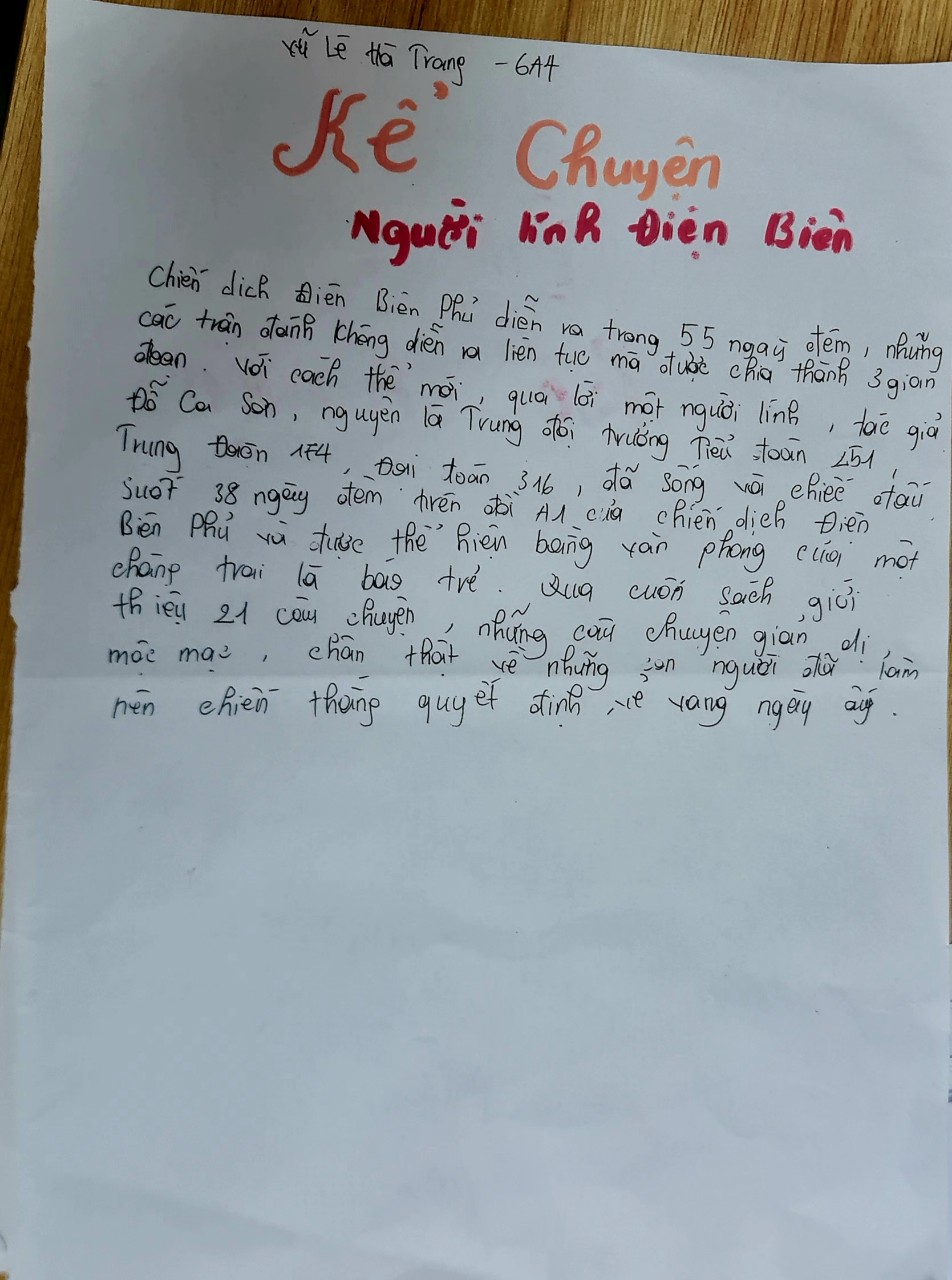 Vũ Lê Hà Trang - 6A4
Kể Chuyện
Người lính Điện Biên
Chiến dịch Điên Biên Phủ diễn ra trong 55 ngaỳ đêm, nhưng
các trận đánh không diễn ra liên tục mà được chia thành 3 gian
đoạn. Với cách thể mới, qua lời một người lính, tác giả
Đỗ Ca Sơn, nguyên là Trung đội trưởng Tiểu toàn 251,
Trung Đoàn 174, Đại toàn 316, đã sống và chiếc đấu
suốt 38 ngày đêm trên đồi A1 của chiến dịch Điện
Biên Phủ và được thể hiện bằng văn phong của một
chàng trai là báo trẻ. Qua cuốn sách giới
thiệu 21 câu chuyện, những câu chuyện giản dị,
mộc mạc, chân thật về những con người đã làm
nên chiến thắng quyết định, vẻ vang ngày ấy.